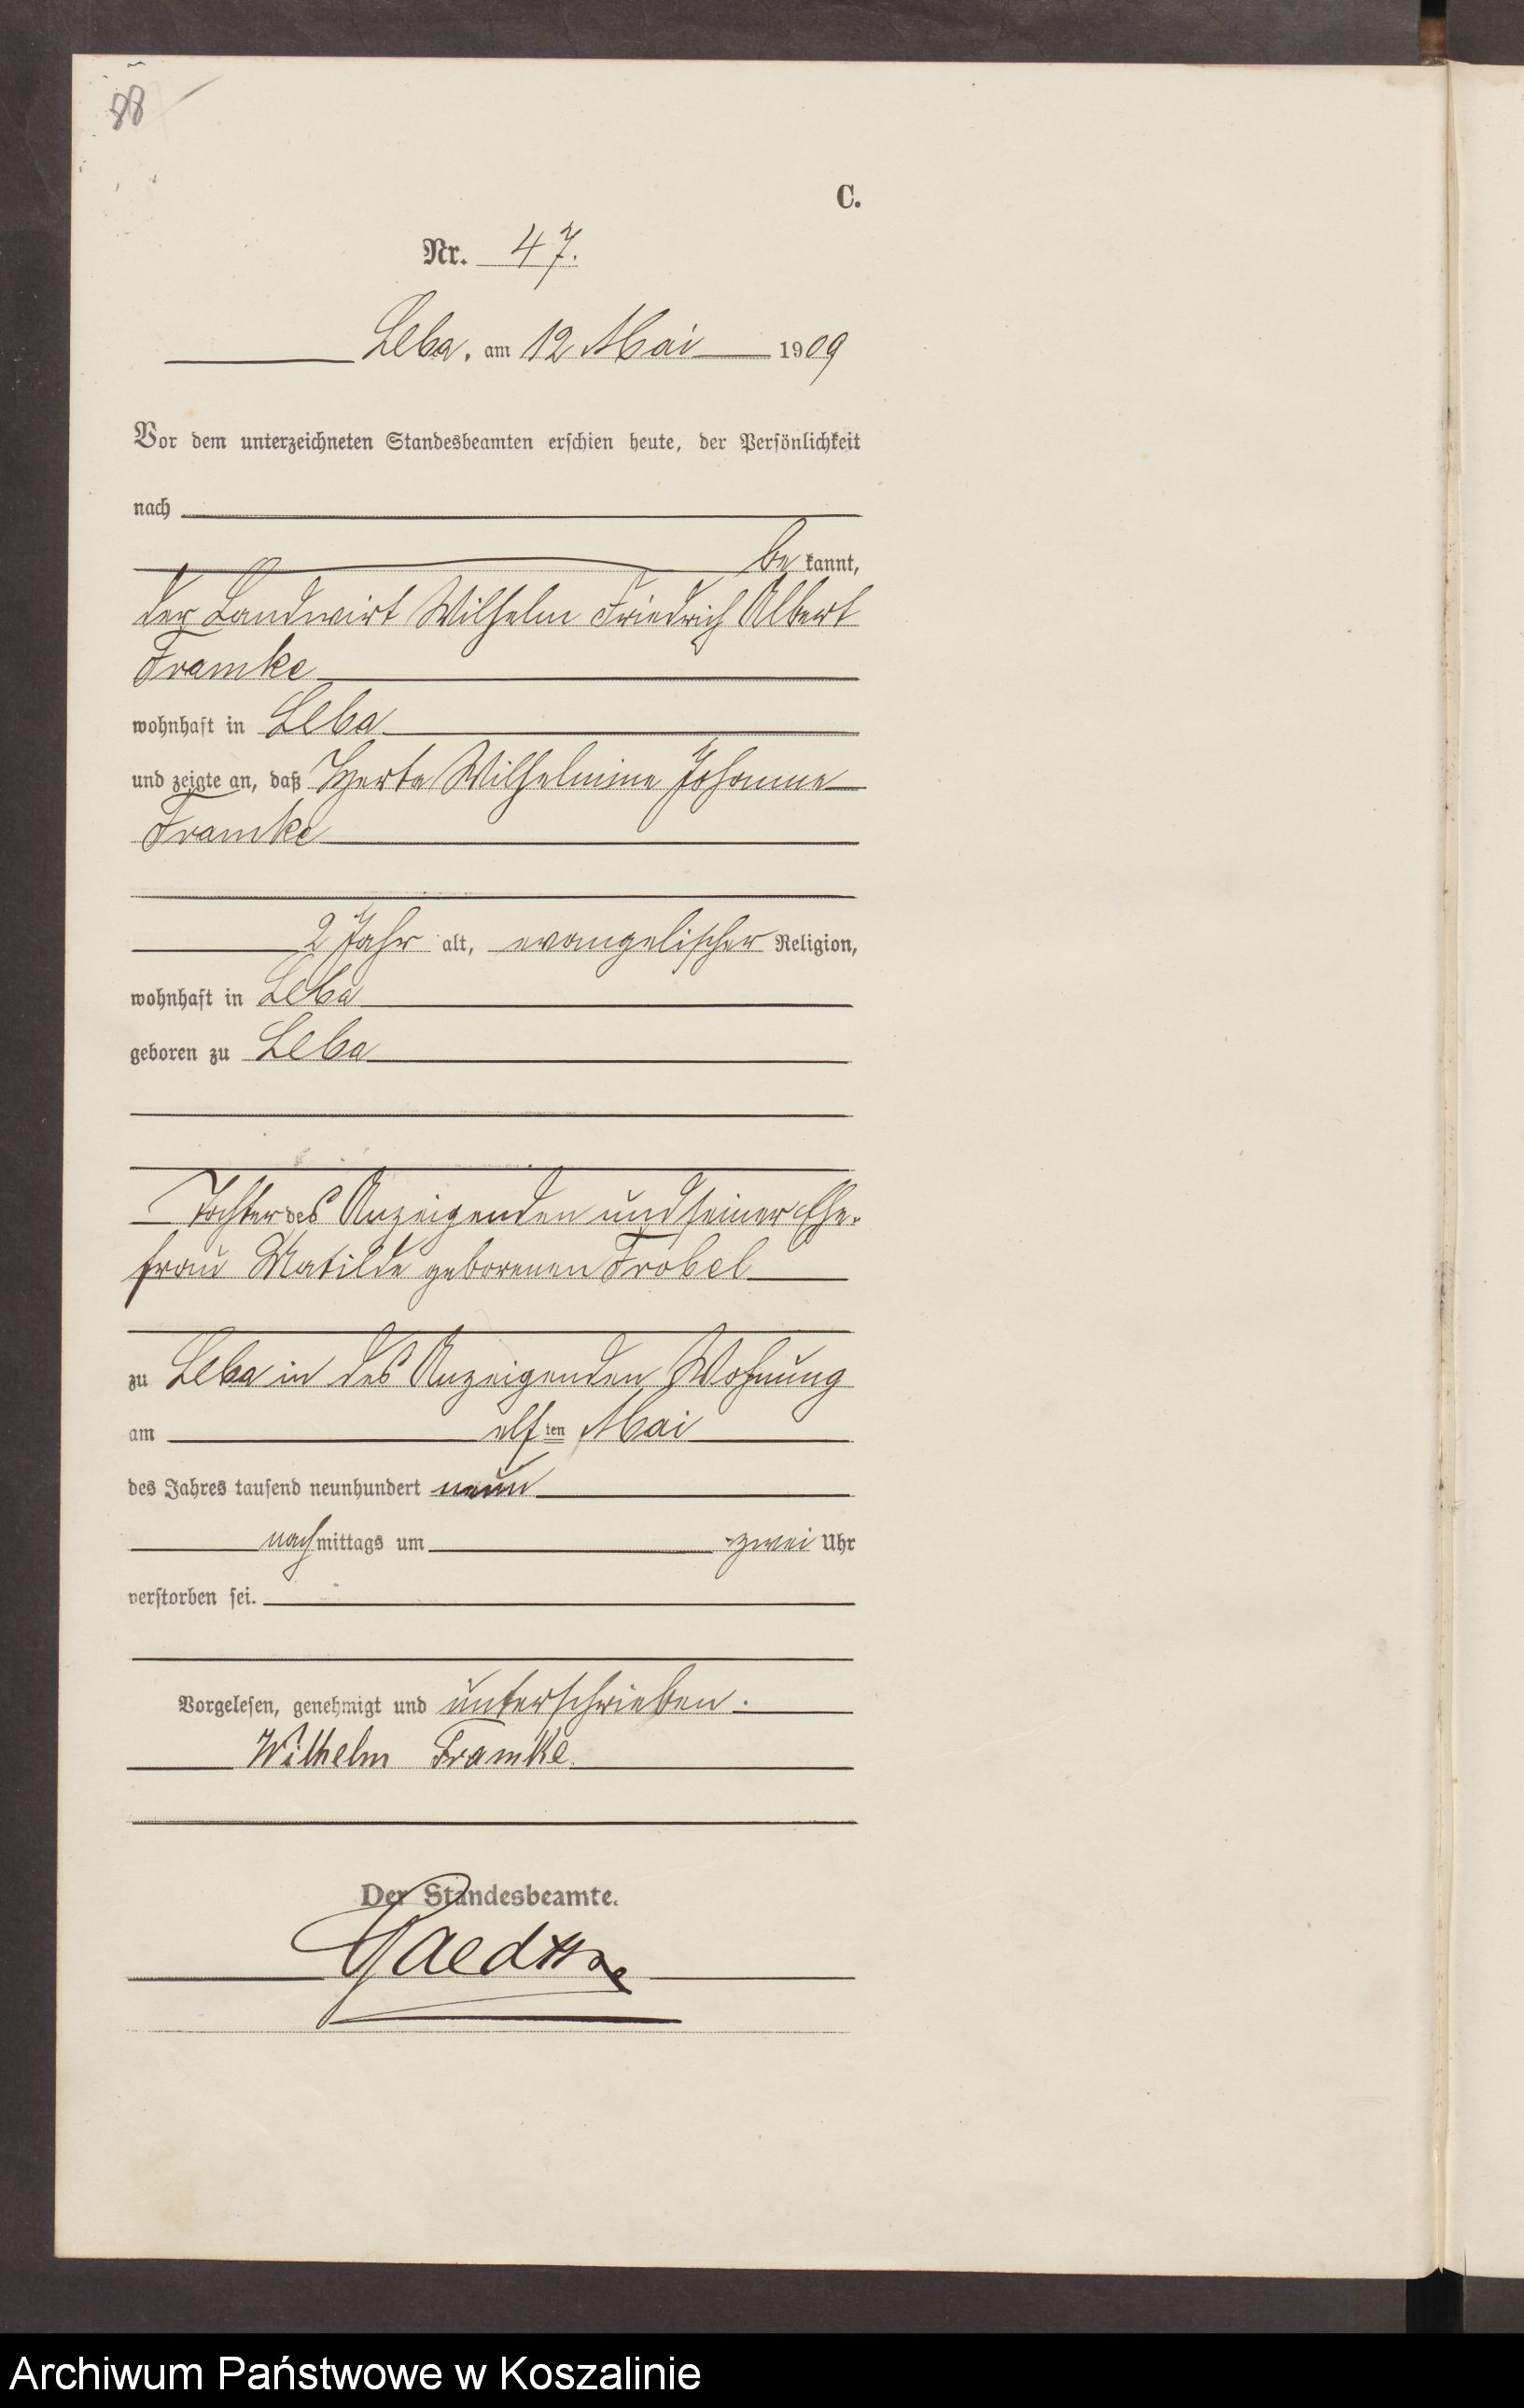 88
C.
Nr. 47.
Leba, am 12 Mai 1909
Vor dem unterzeichneten Standesbeamten erschien heute, der Persönlichkeit
nach
be kannt,
der Landwirt Wilhelm Friedrich Albert
Framke
wohnhaft in Leba
und zeigte an, daß Herta Wilhelmine Johanne
Framke
2 Jahr alt, evangelischer Religion,
wohnhaft in Leba
geboren zu Leba
Tochter des Anzeigenden und seiner Ehe-
frau Matilde geborenen Frobel
zu Leba in des Anzeigenden Wohnung
am elf ten Mai
des Jahres tausend neunhundert neun
nachmittags um zwei Uhr
verstorben sei.
Vorgelesen, genehmigt und unterschrieben.
Wilhelm Framke.
Der Standesbeamte.
Archiwum Państwowe w Koszalinie